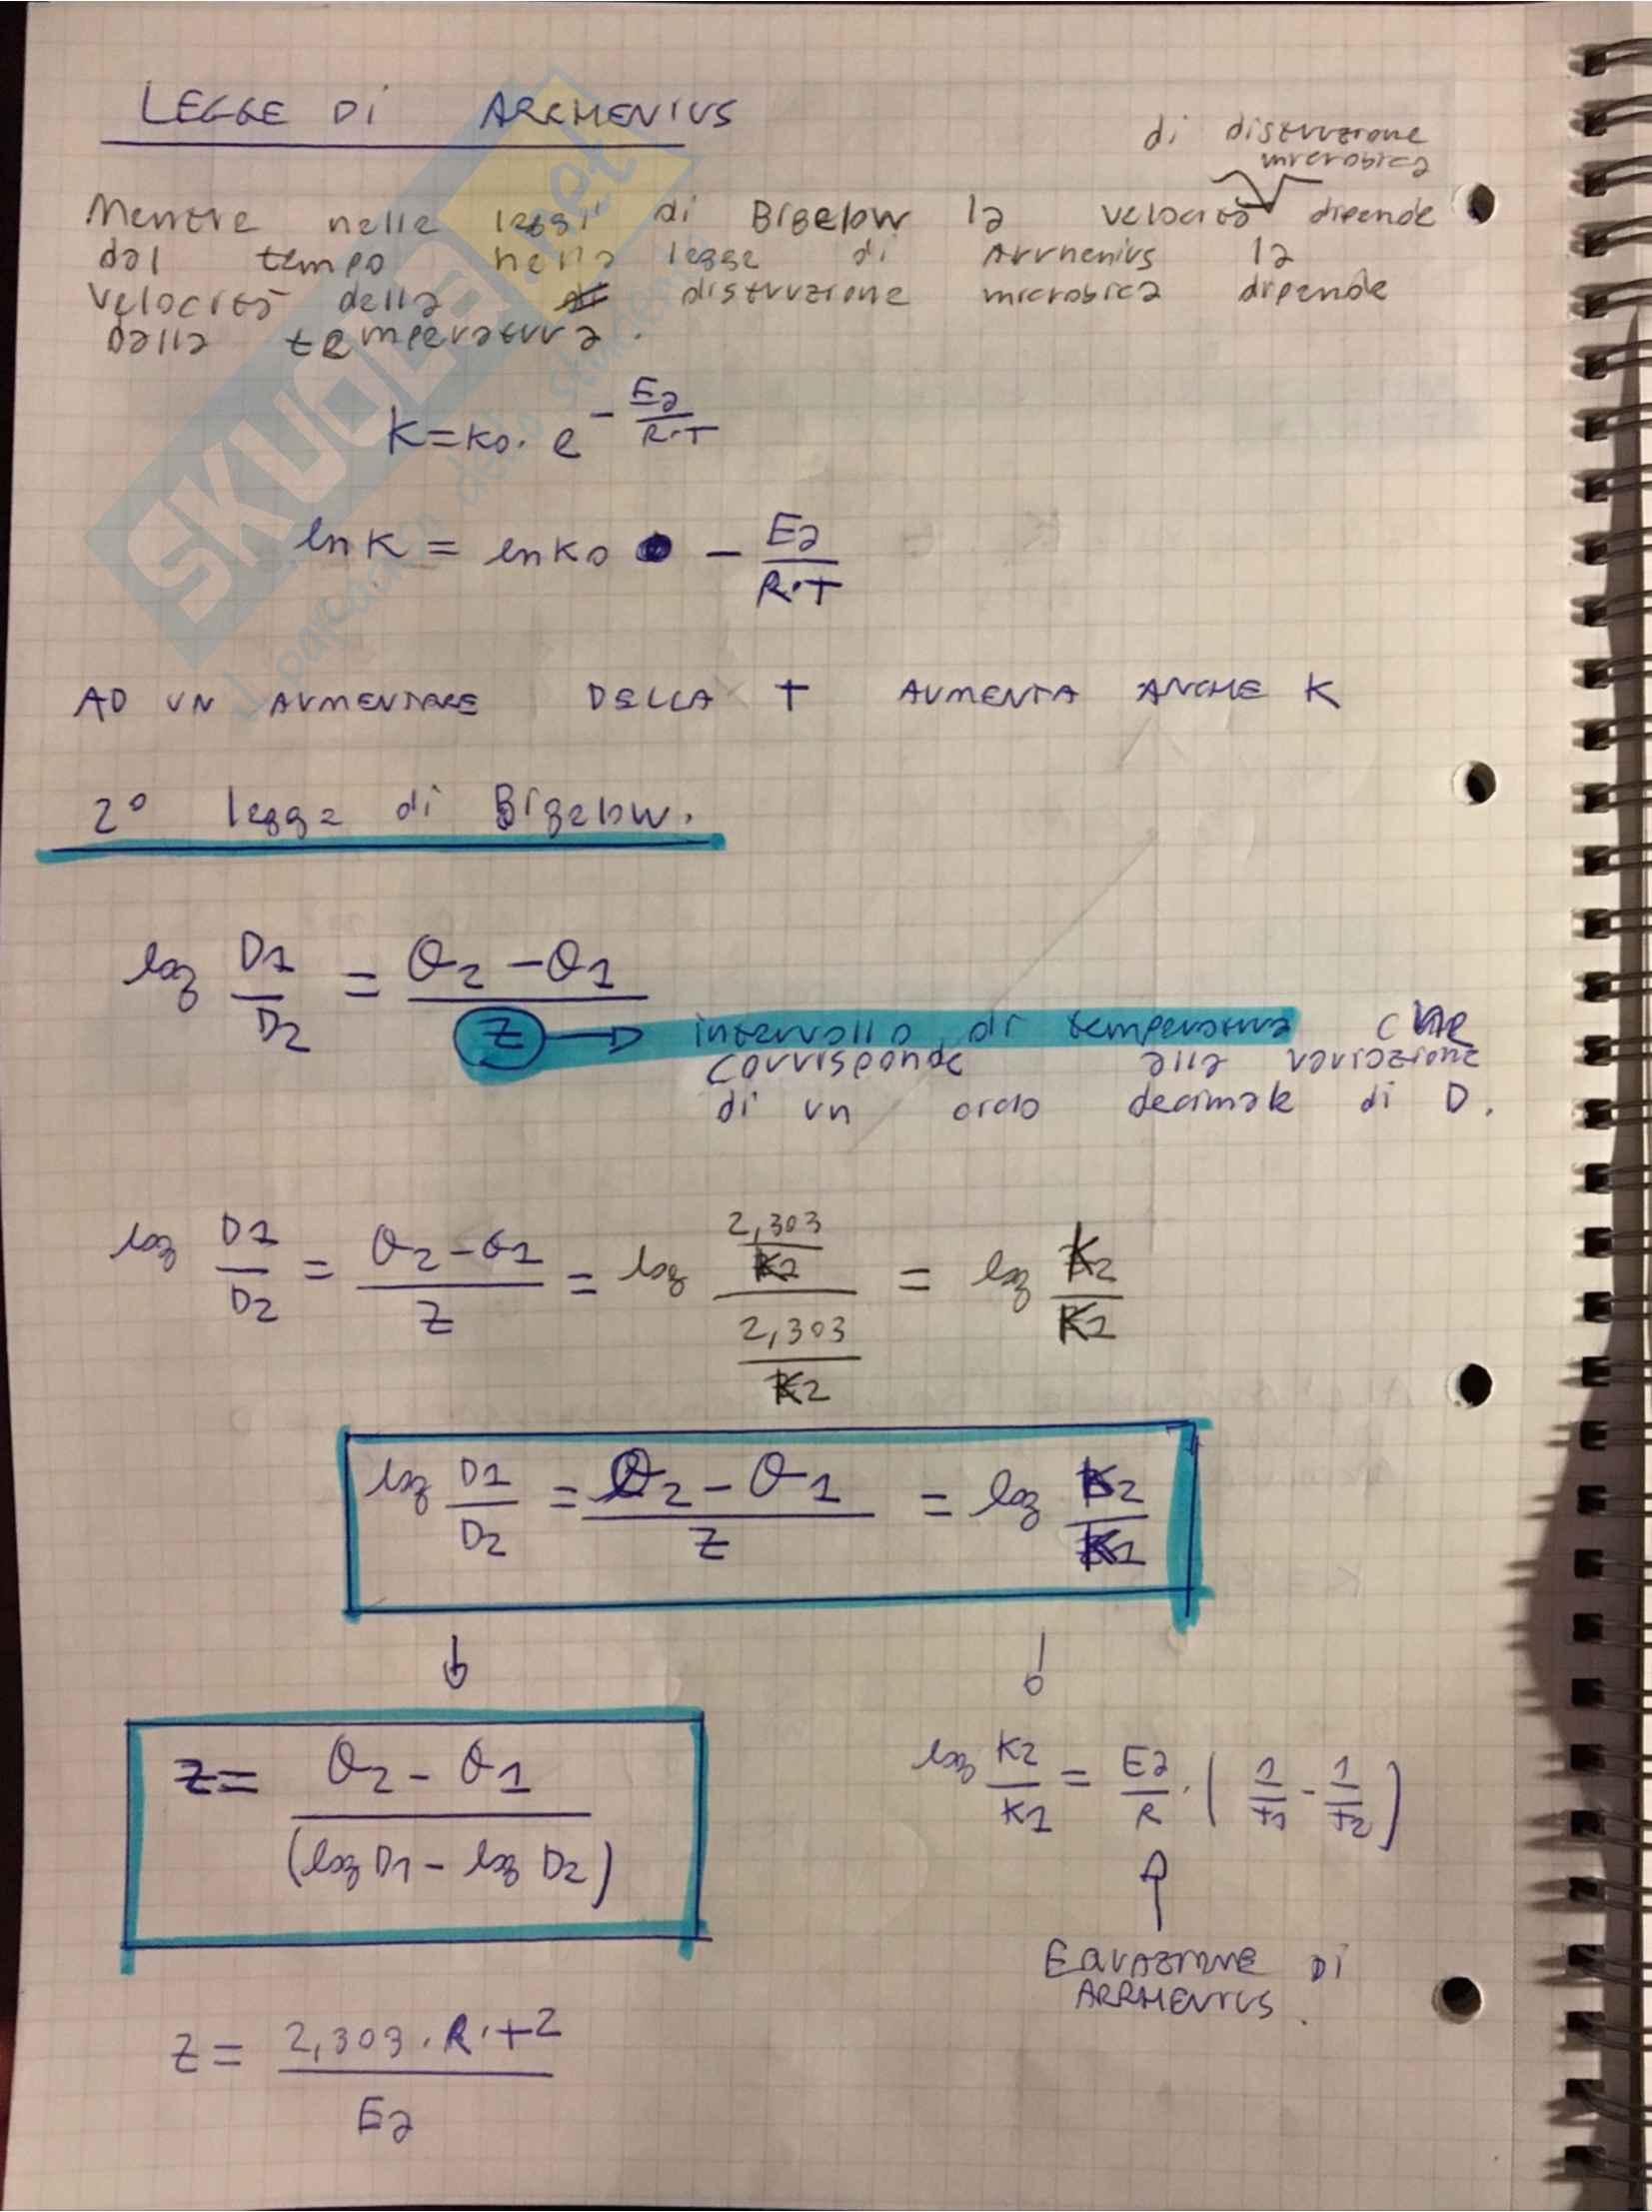 LEGGE Di ARRHENIUS
di distruzione
microbica
Mentre nelle leggi di Bigelow la velocità dipende
dal tempo nella legge di Arrhenius la
velocità della distruzione microbica dipende
dalla temperatura.
K=K0· e^-Ea/R·T
ln K = ln K0 - Ea/R·T
AD UN AUMENTARE DELLA T AUMENTA ANCHE K
2° legge di Bigelow.
log D1/D2 = θ2-θ1/Z
intervallo di temperatura che
corrisponde alla variazione
di un ordo decimale di D.
log D1/D2 = θ2-θ1/Z = log 2,303/K2 / 2,303/K2 = log K2/K1
log D1/D2 = θ2-θ1/Z = log K2/K1
Z= θ2-θ1/(log D1 - log D2)
log K2/K1 = Ea/R · (1/T1 - 1/T2)
EQUAZIONE Di
ARRHENIUS.
Z= 2,303·R·T2/Ea
SKUOLA.net
il paradiso dello studente